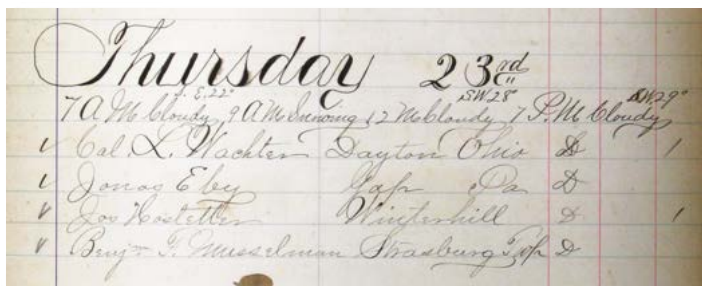 Thursday 23rd
S. E. 22° SW 28° SW 29°
7 A M Cloudy, 9 A M Snowing 12 M Cloudy 7 P. M Cloudy
✓ Cal. L. Wachter Dayton Ohio D 1
✓ Jonas Eby Gap Pa D
✓ Jos Hostetter Winterhill D 1
✓ Benj. F. Musselman Strasburg Top D